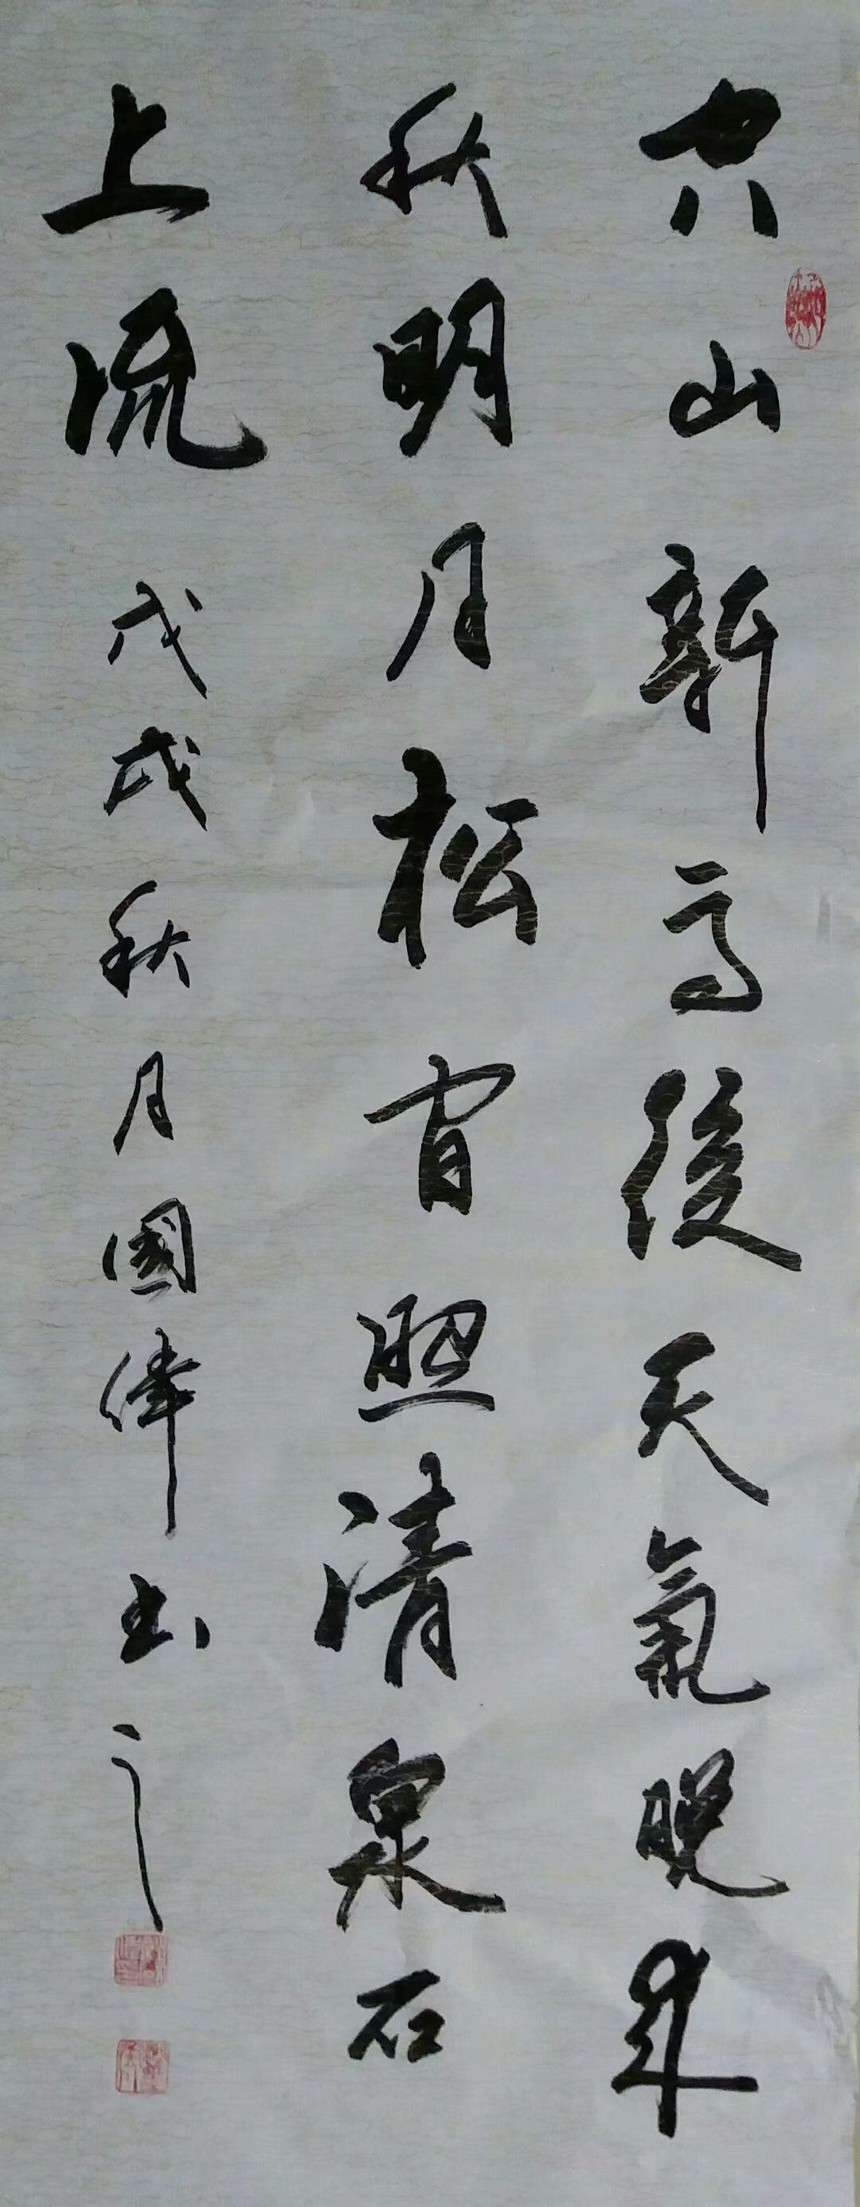 空山新雨後天氣晚來
秋明月松間照清泉石
上流 戊戌秋月國偉書之